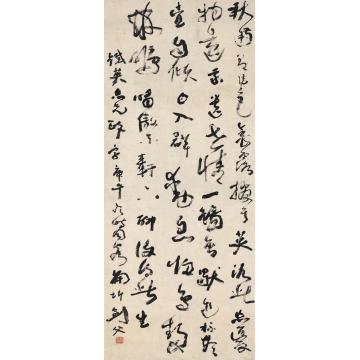 秋菊有佳色裛露掇其英汎此忘憂
物遠我遺世情一觴雖獨進杯盡
壺自傾日入群動息歸鳥趨
林鳴嘯傲東軒下聊復得此生
鐵英六兄政字庚午 劍父